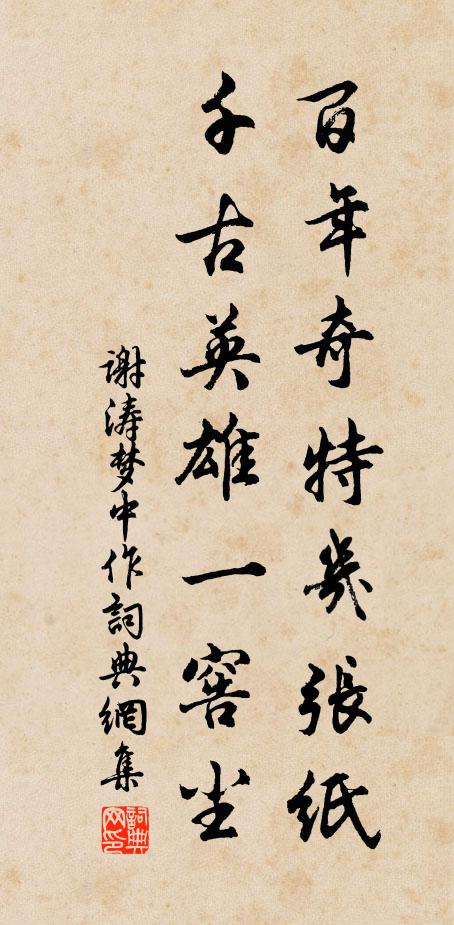 百年奇特几張紙
千古英雄一窖尘
谢涛梦中作詞典網集
詞典网印